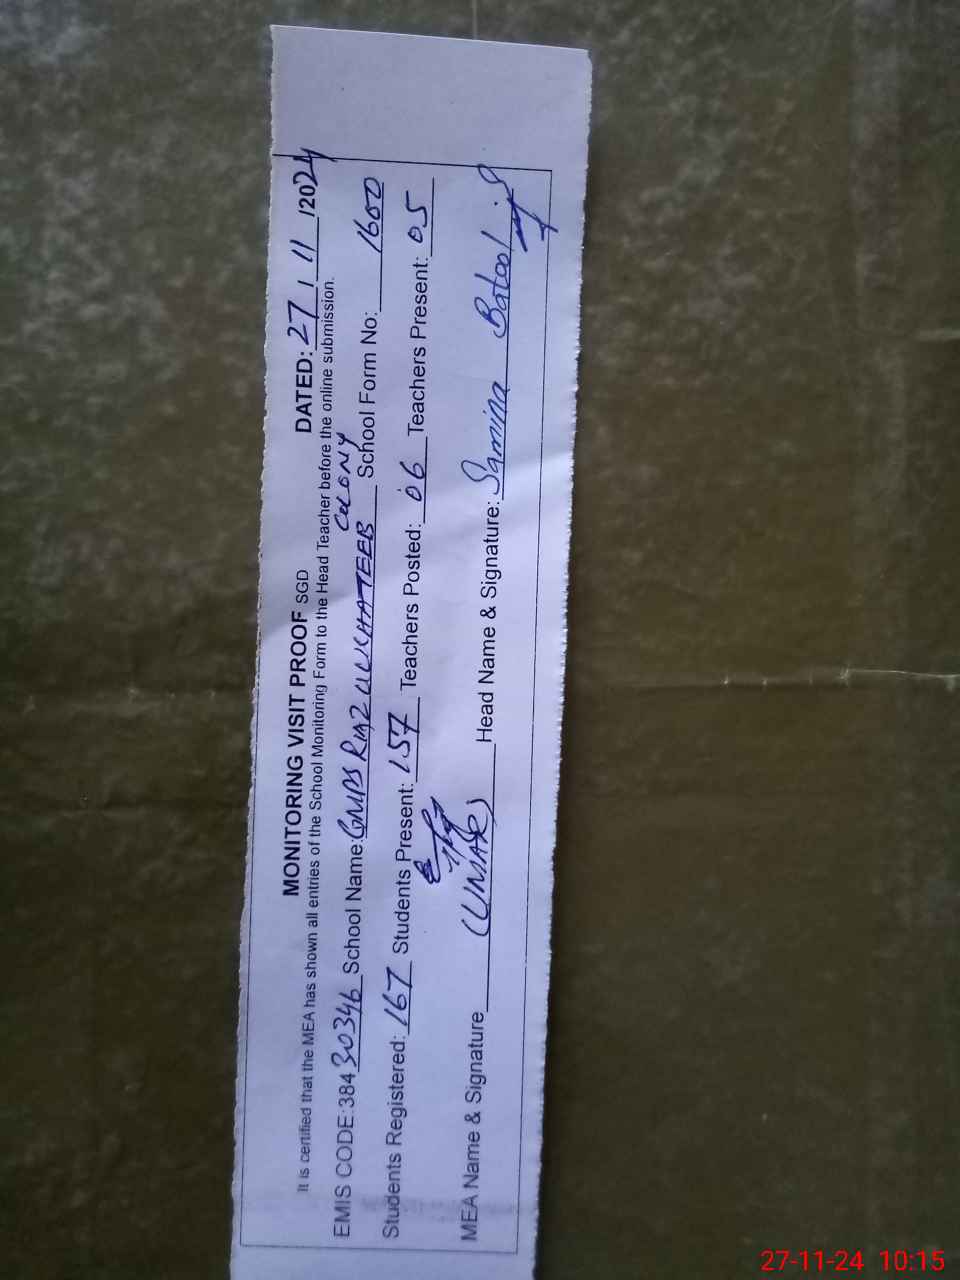 MONITORING VISIT PROOF SGD DATED: 27 / 11 /2024
It is certified that the MEA has shown all entries of the School Monitoring Form to the Head Teacher before the online submission.
EMIS CODE:384 30346 School Name: GMPS RIAZ UL KHATEEB COLONY School Form No: 1600
Students Registered: 167 Students Present: 157 Teachers Posted: 06 Teachers Present: 05
MEA Name & Signature (UMAR) Head Name & Signature: Samina Batool
27-11-24 10:15